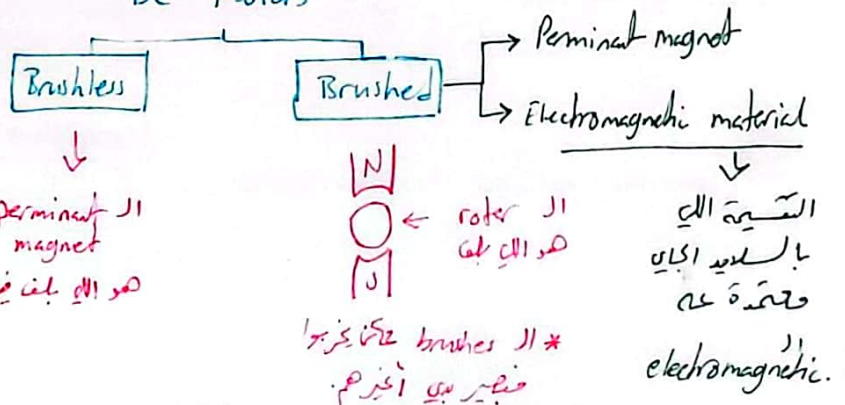 DC Motors
Brushless
Brushed
Perminant magnet
Electromagnetic material
ال perminant
magnet
هو اللي بلف في
N
ال roter
هو اللي بلف
S
* ال brushes ممكن يخربوا
فبصير بدي أغيرهم.
التقسيمة اللي
بالسلايد الجاي
معتمدة عـ
ال
electromagnetic.